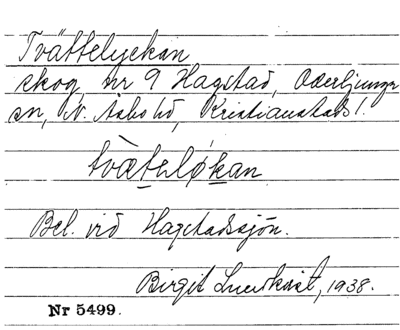 Tvättelyckan
skog, nr 9 Hagstad, Oderljunga
sn, N. Åsbo hd, Kristianstads l.
tvæ̀tələ́kan
Bel. vid Hagstadssjön.
Birgit Lundkvist, 1938.
Nr 5499.